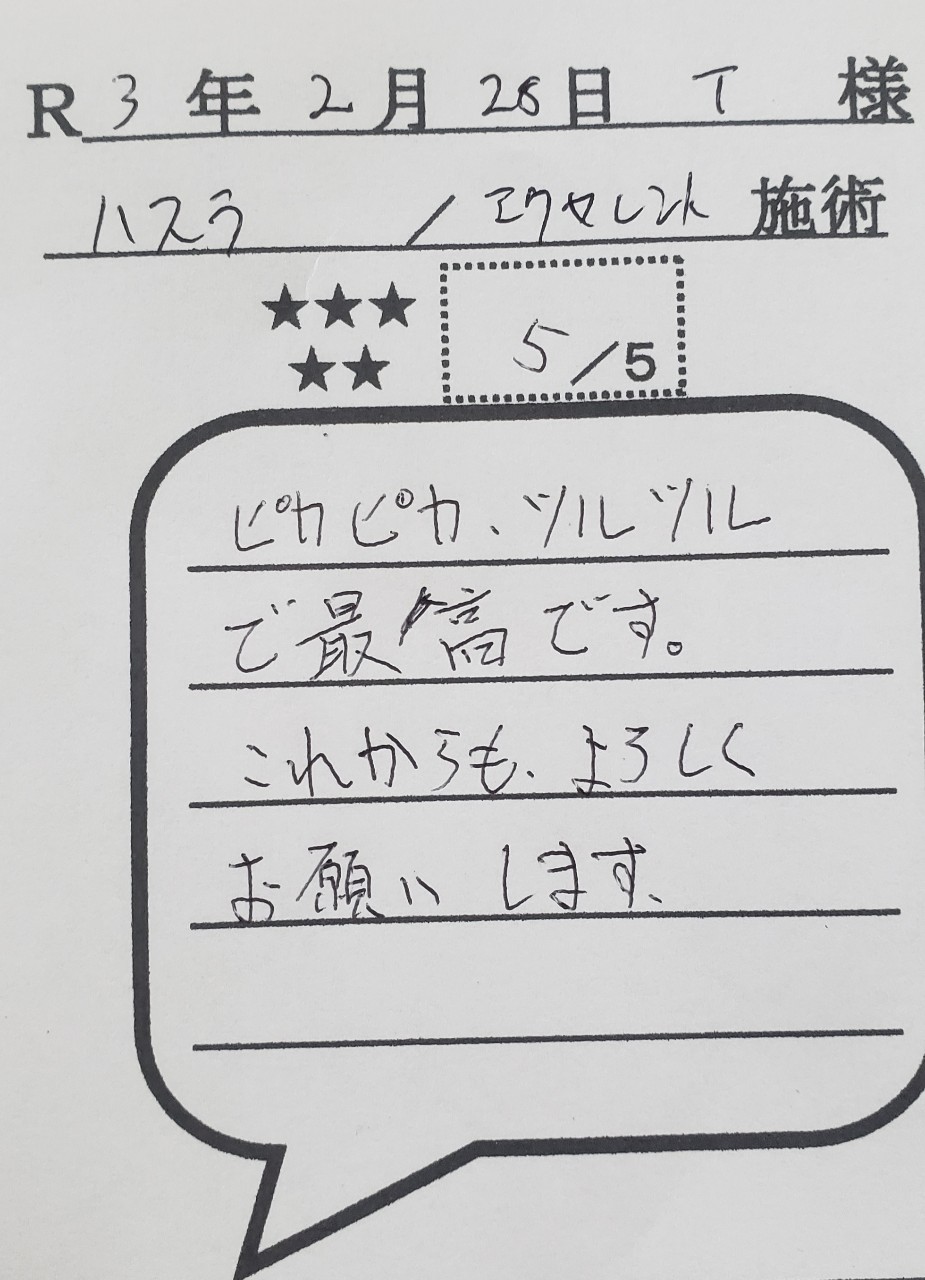 R3年2月28日 T 様
ハスラ / エクセレント 施術
★★★
★★
5/5
ピカピカ、ツルツル
で最高です。
これからも、よろしく
お願いします、